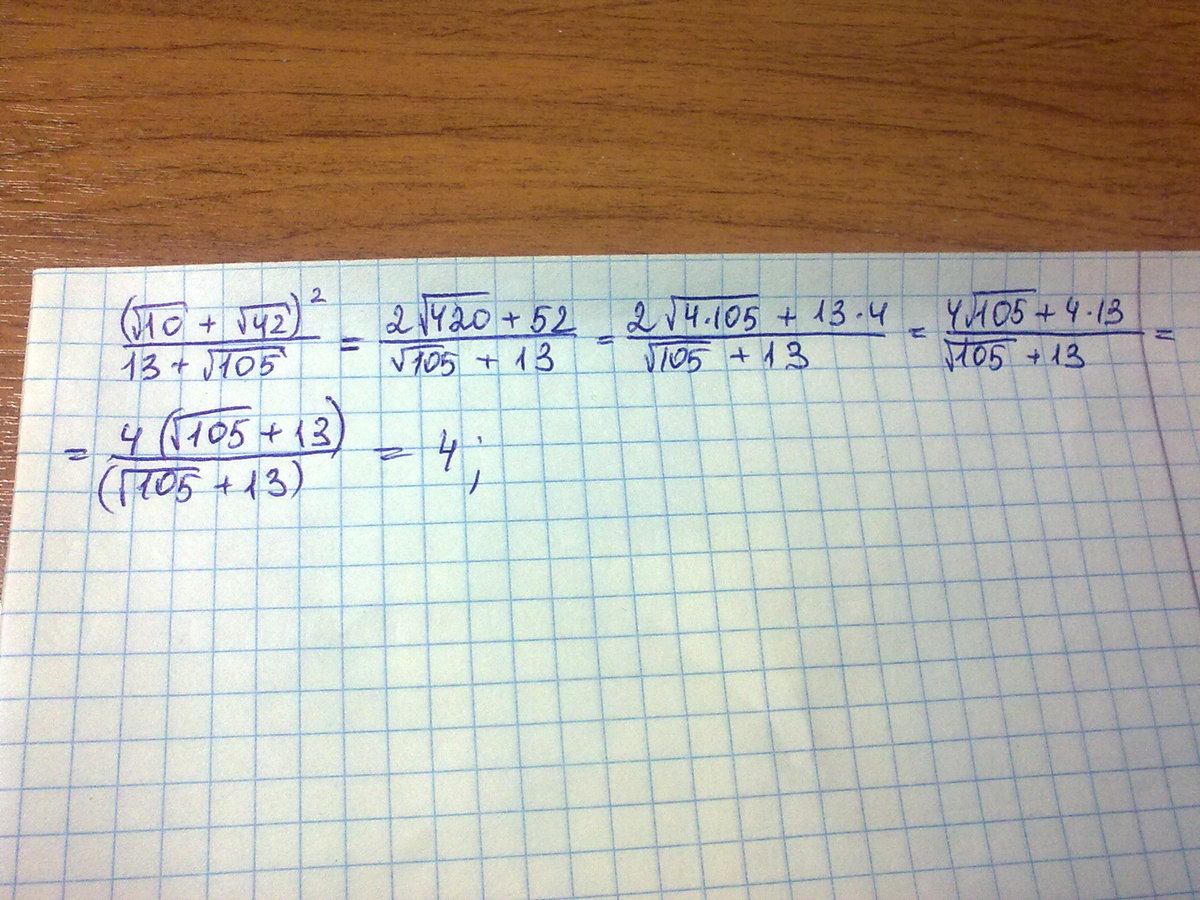 (√10 + √42)² / (13 + √105) = (2√420 + 52) / (√105 + 13) = (2√4·105 + 13·4) / (√105 + 13) = (4√105 + 4·13) / (√105 + 13) =
= 4(√105 + 13) / (√105 + 13) = 4;